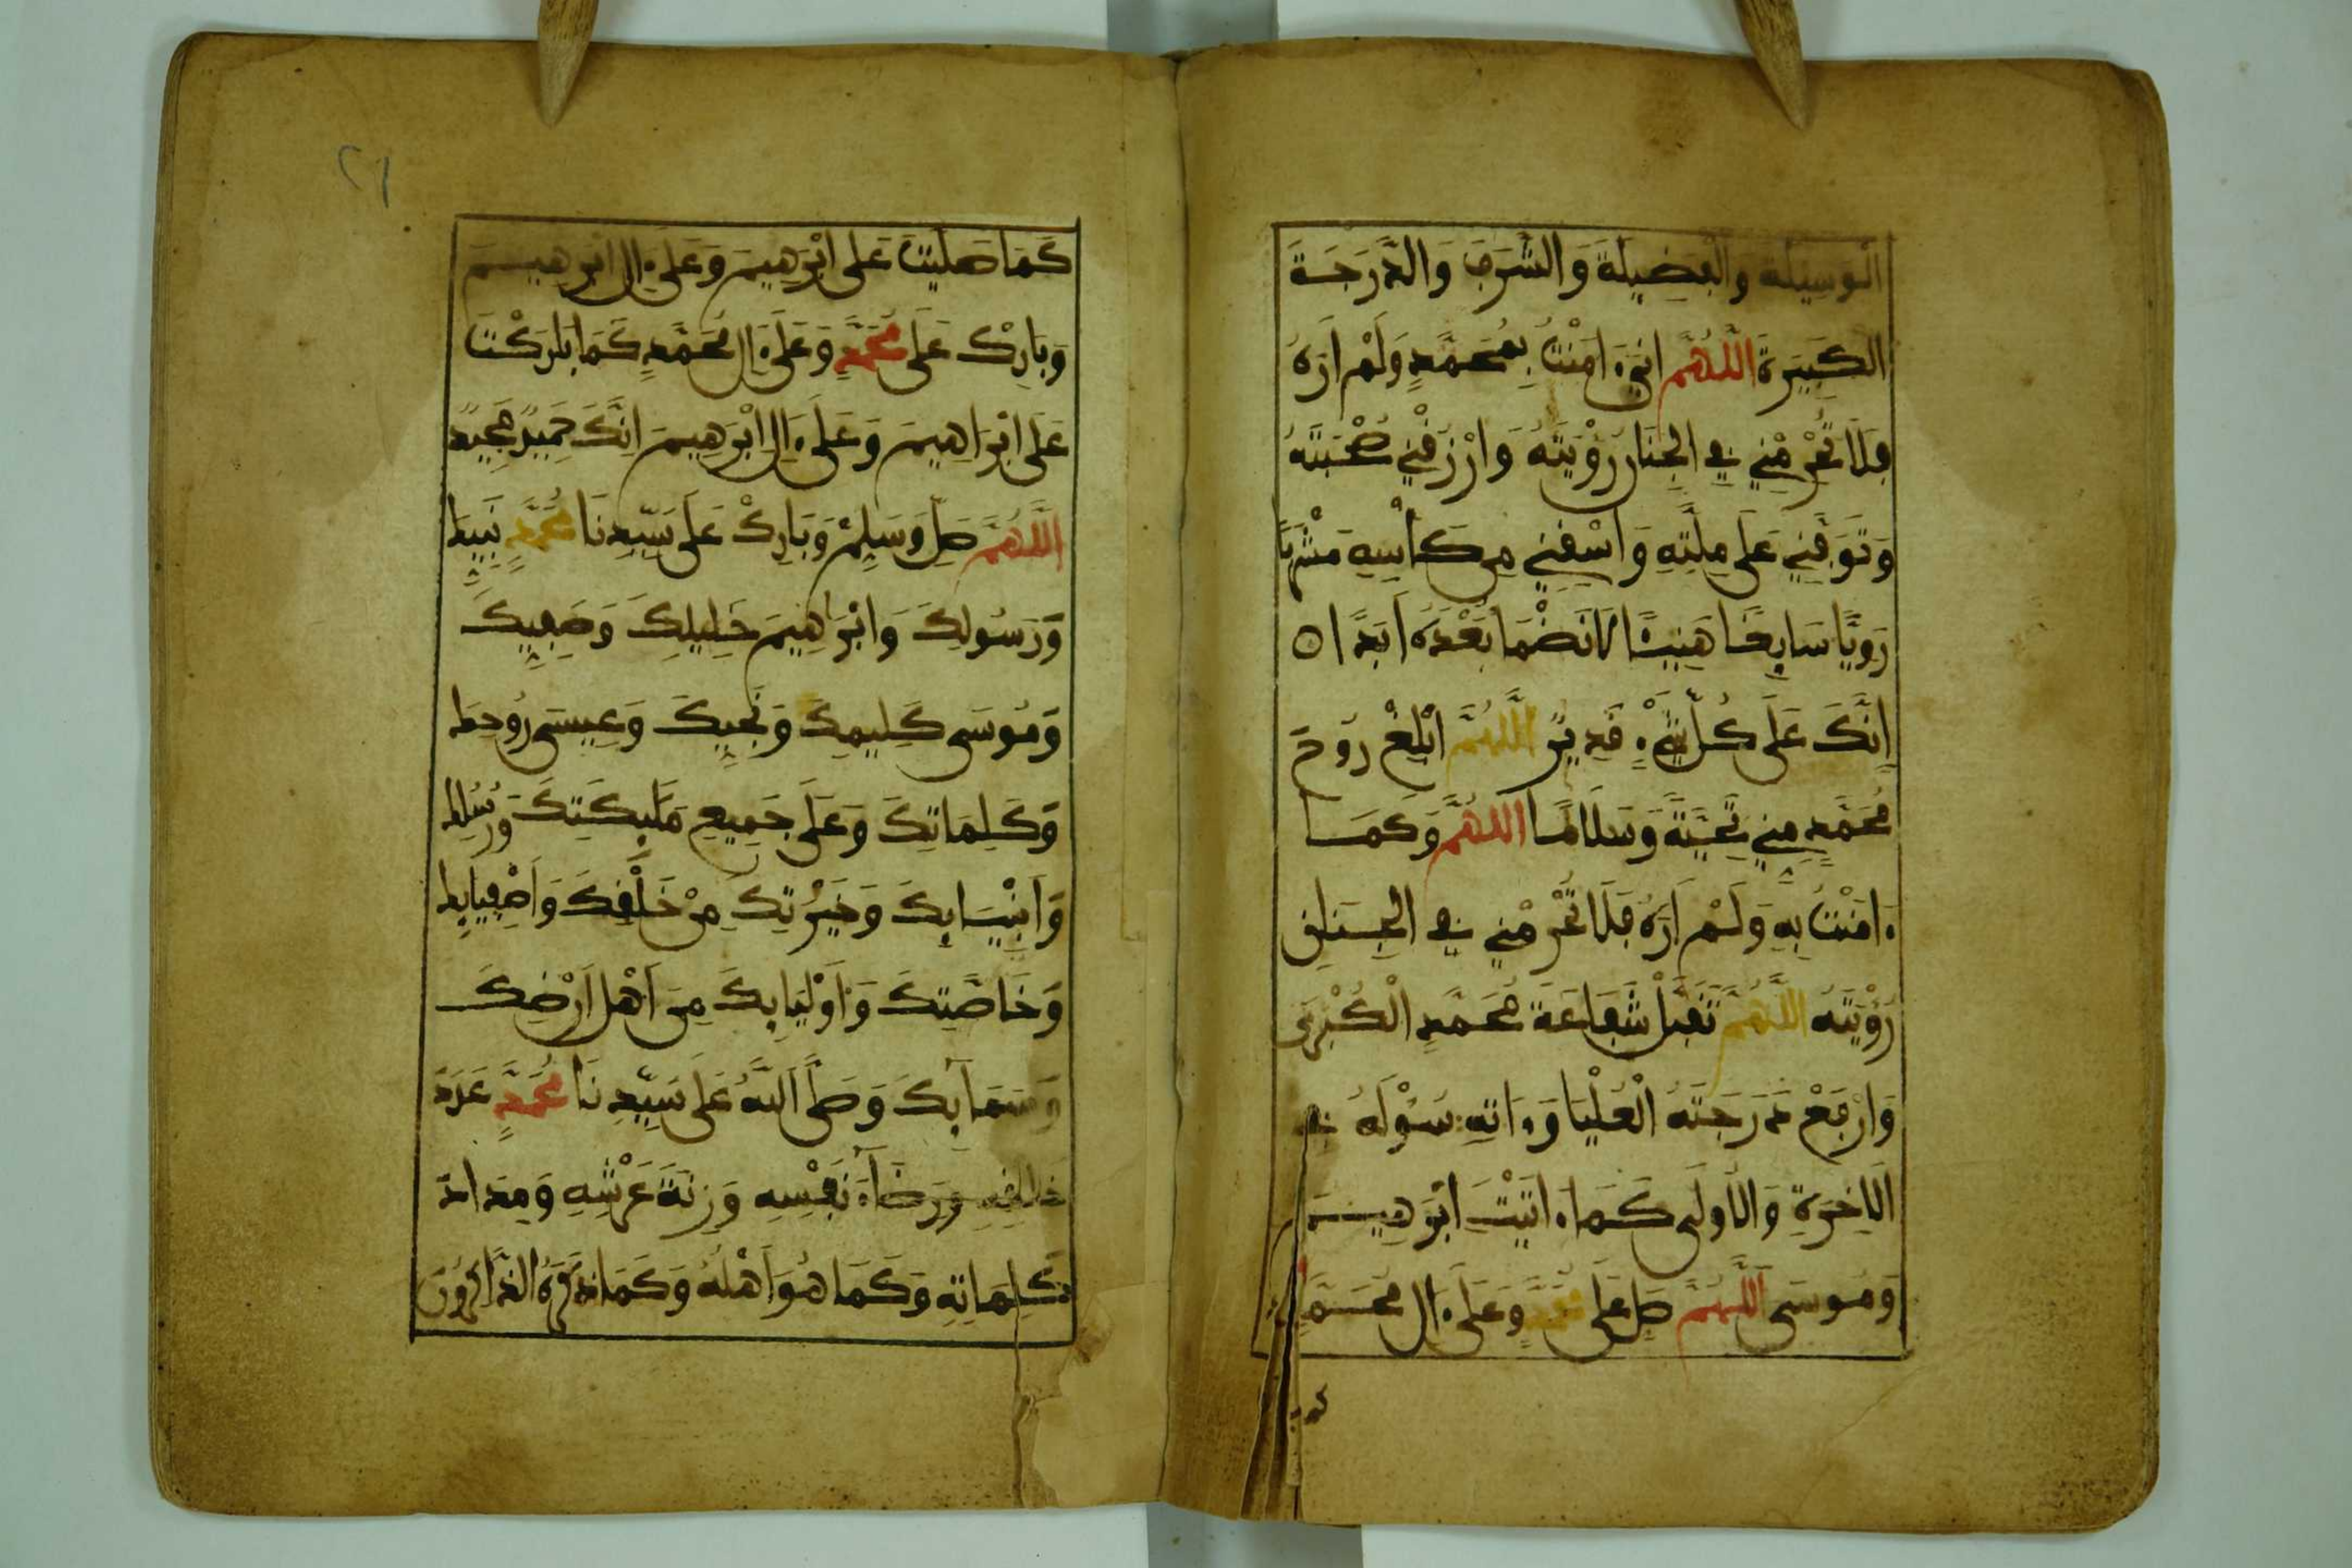 الْوَسِيلَةَ وَالْفَضِيلَةَ وَالشَّرَفَ وَالدَّرَجَةَ
الكَبِيرَةَ اللَّهُمَّ انِّي ءامَنْتُ بِمُحَمَّدٍ وَلَمْ أَرَهُ
فَلَا تَحْرِمْنِي فِي الجِنَانِ رُؤْيَتَهُ وَارْزُقْنِي صُحْبَتَهُ
وَتَوَفَّنِي عَلَى مِلَّتِهِ وَاسْقِنِي مِن كَأْسِهِ مَشْرَبًا
رَوِيًّا سَايِغًا هَنِيئًا لَا نَضْمَا بَعْدَهُ أَبَدًا
إِنَّكَ عَلَى كُلِّ شَيْءٍ قَدِيرٌ اللَّهُمَّ ابْلِغْ رُوحَ
مُحَمَّدٍ مِنِّي تَحِيَّةً وَسَلَامًا اللَّهُمَّ وَكَمَا
ءامَنْتُ بِهِ وَلَمْ أَرَهُ فَلَا تَحْرِمْنِي فِي الجِنَانِ
رُؤْيَتَهُ اللَّهُمَّ تَقَبَّلْ شَفَاعَةَ مُحَمَّدٍ الْكُبْرَى
وَارْفَعْ دَرَجَتَهُ الْعُلْيَا وَءَاتِهِ سُؤْلَهُ فِي
الَاخِرَةِ وَالُاولَى كَمَا ءَاتَيْتَ ابْرَهِيمَ
وَمُوسَى اللَّهُمَّ صَلِّ عَلَى مُحَمَّدٍ وَعَلَى ءَالِ مُحَمَّدٍ
كما
٢١
كَمَا صَلَّيْتَ عَلَى ابْرَهِيمَ وَعَلَى ءَالِ ابْرَهِيمَ
وَبَارِكْ عَلَى مُحَمَّدٍ وَعَلَى ءَالِ مُحَمَّدٍ كَمَا بَارَكْتَ
عَلَى ابْرَاهِيمَ وَعَلَى ءَالِ ابْرَهِيمَ انَّكَ حَمِيدٌ مَجِيدٌ
اللَّهُمَّ صَلِّ وَسَلِّمْ وَبَارِكْ عَلَى سَيِّدِنَا مُحَمَّدٍ نَبِيِّكَ
وَرَسُولِكَ وَابْرَاهِيمَ خَلِيلِكَ وَصَفِيِّكَ
وَمُوسَى كَلِيمِكَ وَنَجِيِّكَ وَعِيسَى رُوحِكَ
وَكَلِمَاتِكَ وَعَلَى جَمِيعِ مَلَٰيِكَتِكَ وَرُسُلِكَ
وَأَنْبِيَايِكَ وَخَيْرَتِكَ مِنْ خَلْقِكَ وَأَصْفِيَايِكَ
وَخَاصَّتِكَ وَأَوْلِيَايِكَ مِنَ أَهْلِ أَرْضِكَ
وَسَمَآيِكَ وَصَلَّى اللَّهُ عَلَى سَيِّدِنَا مُحَمَّدٍ عَدَدَ
خَلْقِهِ وَرِضَآءَ نَفْسِهِ وَزِنَةَ عَرْشِهِ وَمِدَادَ
كَلِمَاتِهِ وَكَمَا هُوَ أَهْلُهُ وَكَمَا ذَكَرَهُ الذَّاكِرُونَ